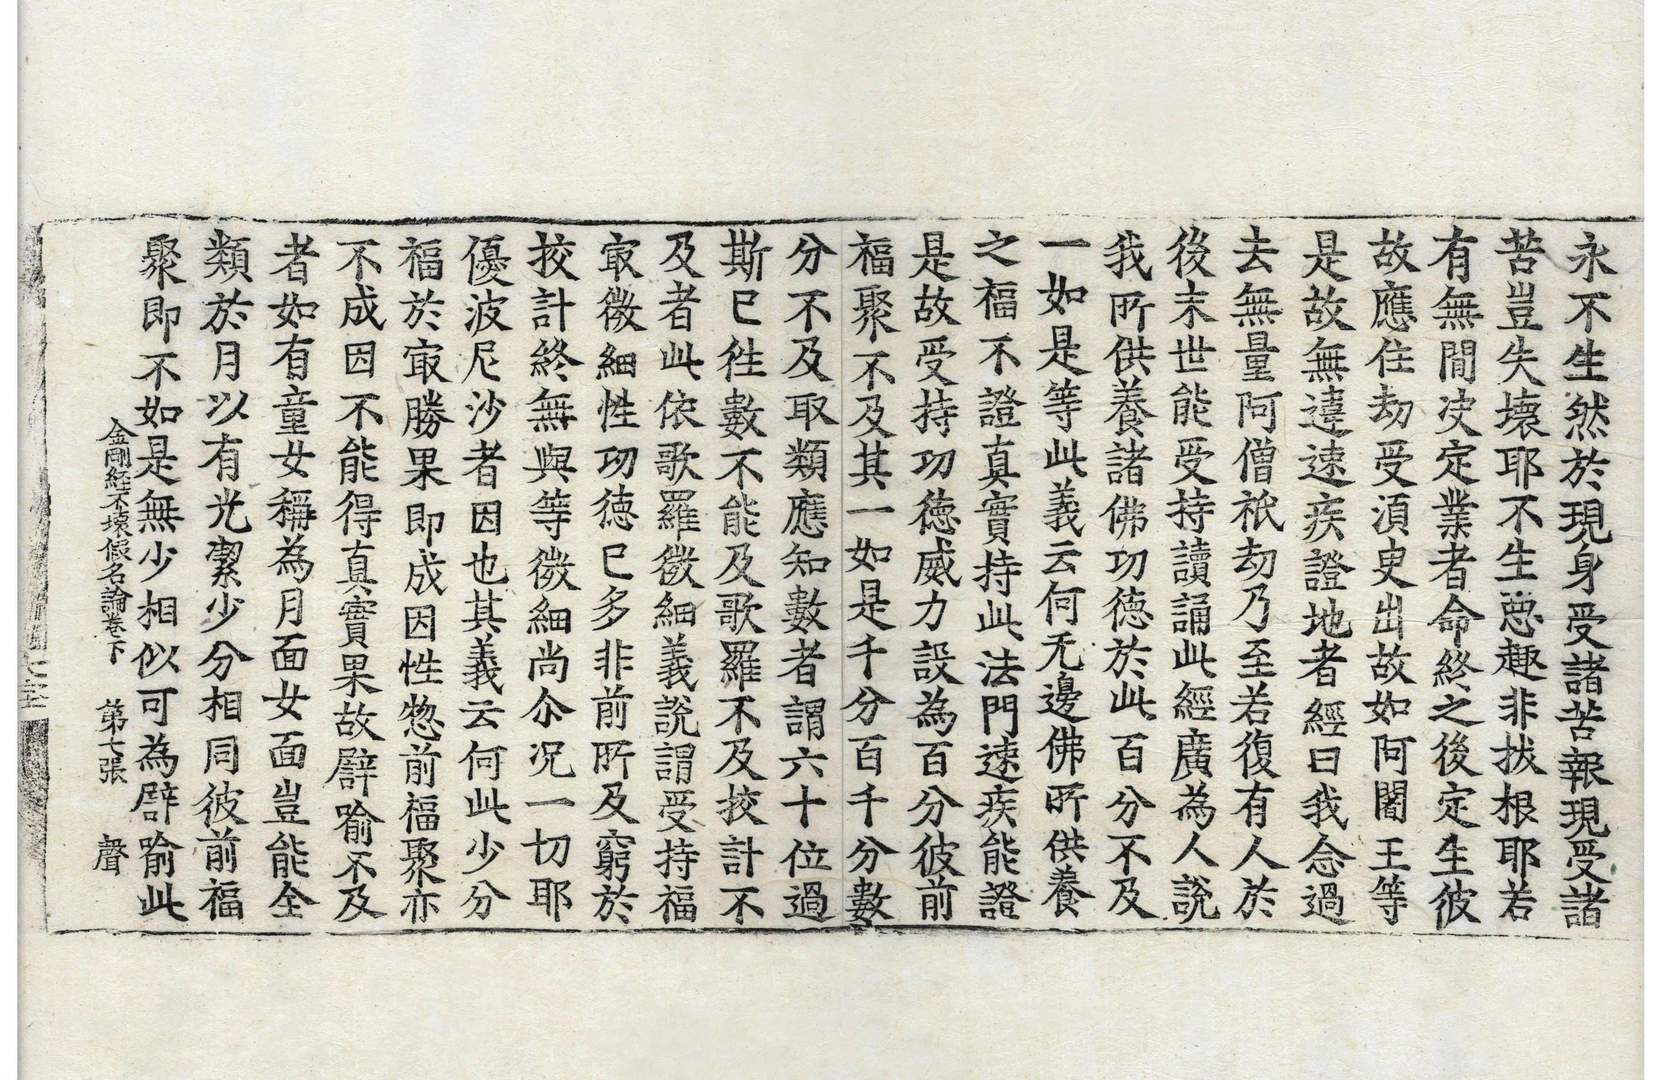 永不生然於現身受諸苦報現受諸
苦豈失壞耶不生惡趣非拔根耶若
有無間決定業者命終之後定生彼
故應住劫受湏臾出故如阿闍王等
是故無違速疾證地者經曰我念過
去無量阿僧祇劫乃至若復有人於
後末世能受持讀誦此經廣為人說
我所供養諸佛功德於此百分不及
一如是等此義云何无邊佛所供養
之福不證真實持此法門速疾能證
是故受持功德威力設為百分彼前
福聚不及其一如是千分百千分數
分不及取類應知數者謂六十位過
斯已徃數不能及歌羅不及挍計不
及者此依歌羅微細義說謂受持福
㝡微細性功德已多非前所及窮於
挍計終無與等微細尚尒况一切耶
優波尼沙者因也其義云何此少分
福於㝡勝果即成因性揔前福聚亦
不成因不能得真實果故譬喻不及
者如有童女稱為月面女面豈能全
類於月以有光潔少分相同彼前福
聚即不如是無少相似可為譬喻此
金剛經不壞假名論卷下　第七張　聲